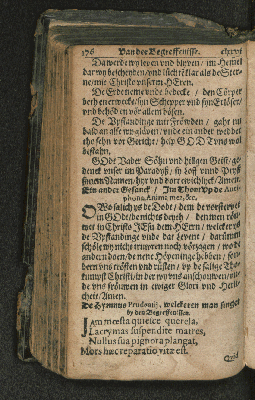 176 Van der Begreffenisse. clxxvj
Da werde wy leven vnd blyven / im Hemel
dar wy beschenden / vnd lücht klar als de Ster-
ne / mit Christo vnserm HEren.
De Erdenème vnde bedecke / den Cörper
beth en erwecke / syn Schepper vnd syn Erlöser /
vnd behöd en vör allem bösen.
De Vpstandinge mit Fröwden / gahe
bald an alle
tho sehn vor Gericht / help GODT vns wol
bestahn.
GOdt Vader Söhn vnd hilligen Geist / ge-
denck vnser im Paradyß / sy loff vnd Pryß
synem Namen / hyr vnd dort ewichlyck / Amen.
Ein ander Gesanck / Im Thon Vp de Anti-
phona, Anima mea, &c.
O Wo salich ys de Dodt / dem de vorstervet
in GOdt / de nicht bedroh /
wet in Christo JEsu dem HErrn / welcker ys
de Vpstandinge vnde dat Levent / darümm
schöle wy nicht truwren noch vörzagen / wo de
andern doen / de nene Höpeninge hebben /
dern vns trösten vnd rüsten / vp de salige Tho-
kumpst Christi / in der wy vns anschouwen /
de vns fröuwen in ewiger Glori vnd Herli-
cheit / Amen.
De Hymnus Prudentij, welckeren man singet
by den Begreffenissen.
IAm mœsta quiesce querela,
Lacrymas suspendite matres,
Nullus sua pignora plangat,
Mors hæc reparatio vitæ est.